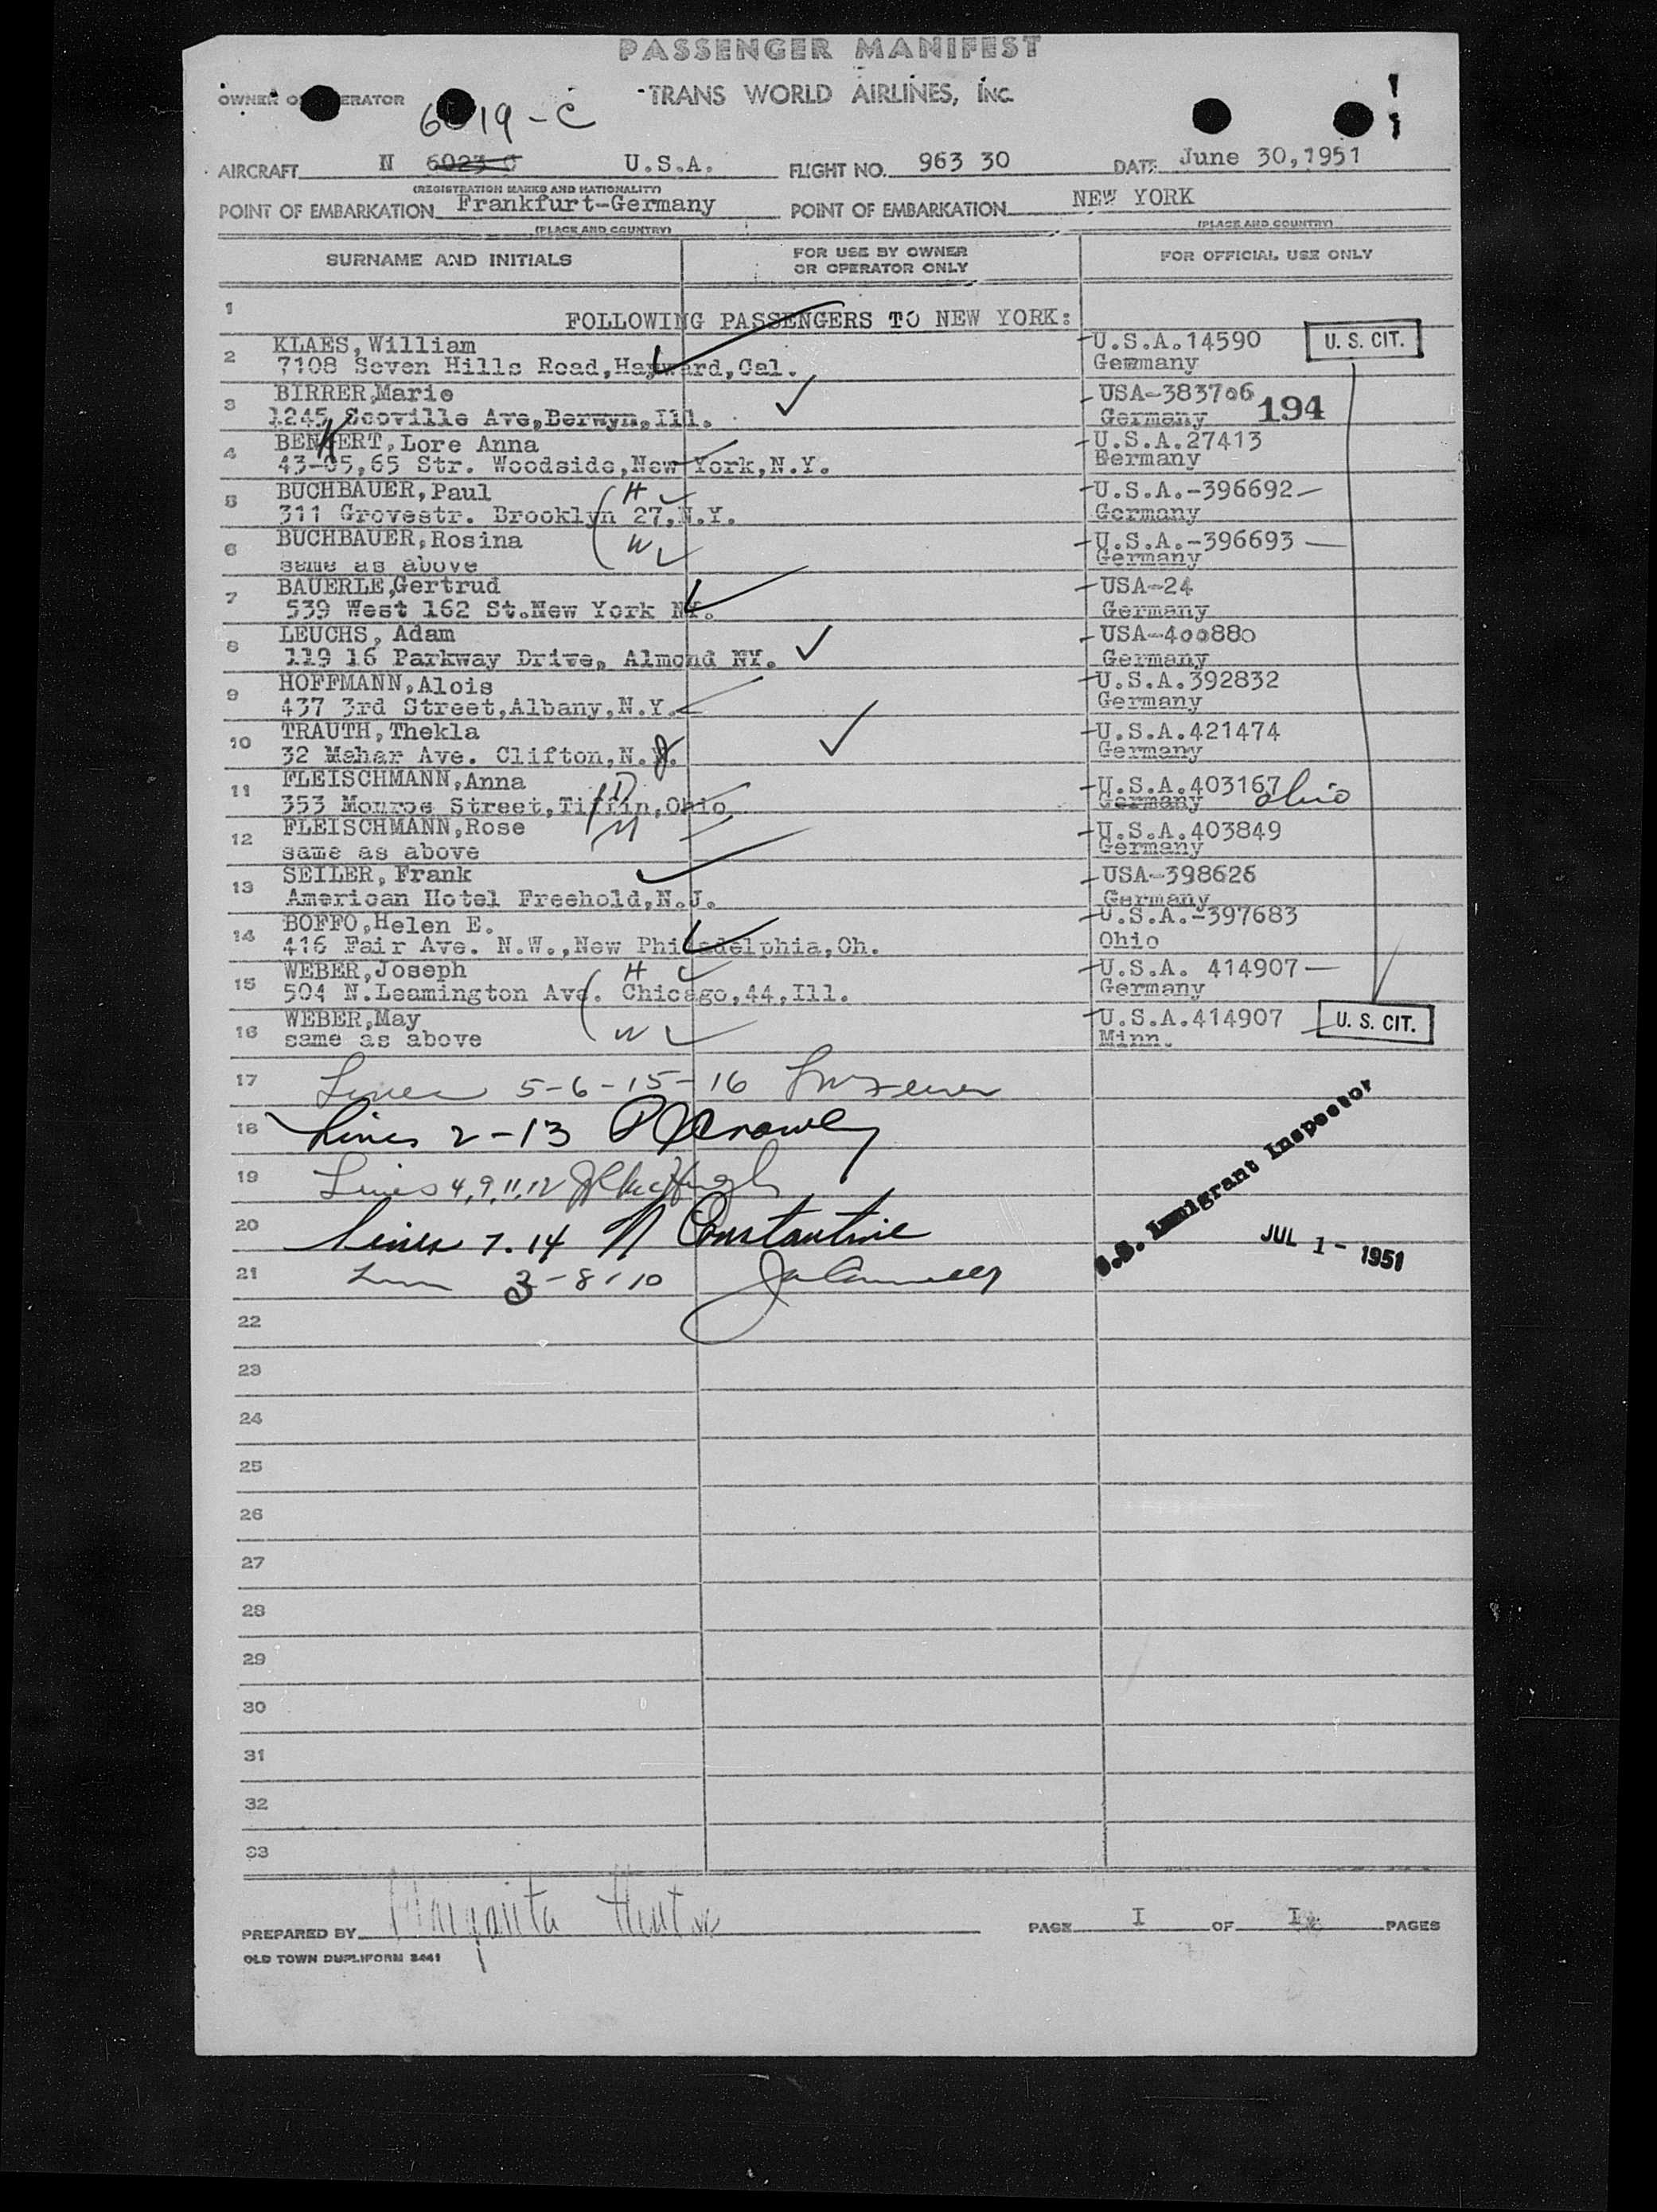 PASSENGER MANIFEST
OWNER OR OPERATOR
TRANS WORLD AIRLINES, INC.
6019-C
AIRCRAFT N 6023 C U.S.A. FLIGHT NO. 963 30 DATE June 30,1951
(REGISTRATION MARKS AND NATIONALITY)
POINT OF EMBARKATION Frankfurt-Germany POINT OF EMBARKATION NEW YORK
(PLACE AND COUNTRY) (PLACE AND COUNTRY)
SURNAME AND INITIALS FOR USE BY OWNER OR OPERATOR ONLY FOR OFFICIAL USE ONLY
1 FOLLOWING PASSENGERS TO NEW YORK:
2 KLAES,William U.S.A.14590 U. S. CIT.
7108 Seven Hills Road,Hayward,Cal. Germany
3 BIRRER,Marie USA-383706 194
1245 Scoville Ave,Berwyn,Ill. Germany
4 BENKERT,Lore Anna U.S.A.27413
43-05,65 Str. Woodside,New York,N.Y. Germany
5 BUCHBAUER,Paul H U.S.A.-396692
311 Grovestr. Brooklyn 27,N.Y. Germany
6 BUCHBAUER,Rosina W U.S.A.-396693
same as above Germany
7 BAUERLE,Gertrud USA-24
539 West 162 St.New York NY. Germany
8 LEUCHS, Adam USA-400880
119 16 Parkway Drive, Almond NY. Germany
9 HOFFMANN,Alois U.S.A.392832
437 3rd Street,Albany,N.Y. Germany
10 TRAUTH,Thekla U.S.A.421474
32 Mahar Ave. Clifton,N.J. Germany
11 FLEISCHMANN,Anna D U.S.A.403167
353 Monroe Street,Tiffin,Ohio Germany Ohio
12 FLEISCHMANN,Rose M U.S.A.403849
same as above Germany
13 SEILER, Frank USA-398626
American Hotel Freehold,N.J. Germany
14 BOFFO,Helen E. U.S.A.-397683
416 Fair Ave. N.W.,New Philadelphia,Oh. Ohio
15 WEBER,Joseph H U.S.A. 414907
504 N.Leamington Ave. Chicago,44,Ill. Germany
16 WEBER,May W U.S.A.414907 U. S. CIT.
same as above Minn.
17 Lines 5-6-15-16
18 Lines 2-13
19 Lines 4,9,11,12
20 Lines 7-14 N Constantine
U.S. Immigrant Inspector
JUL 1- 1951
21 3-8-10
22
23
24
25
26
27
28
29
30
31
32
33
PREPARED BY PAGE I OF I PAGES
OLD TOWN DUPLIFORM 2441